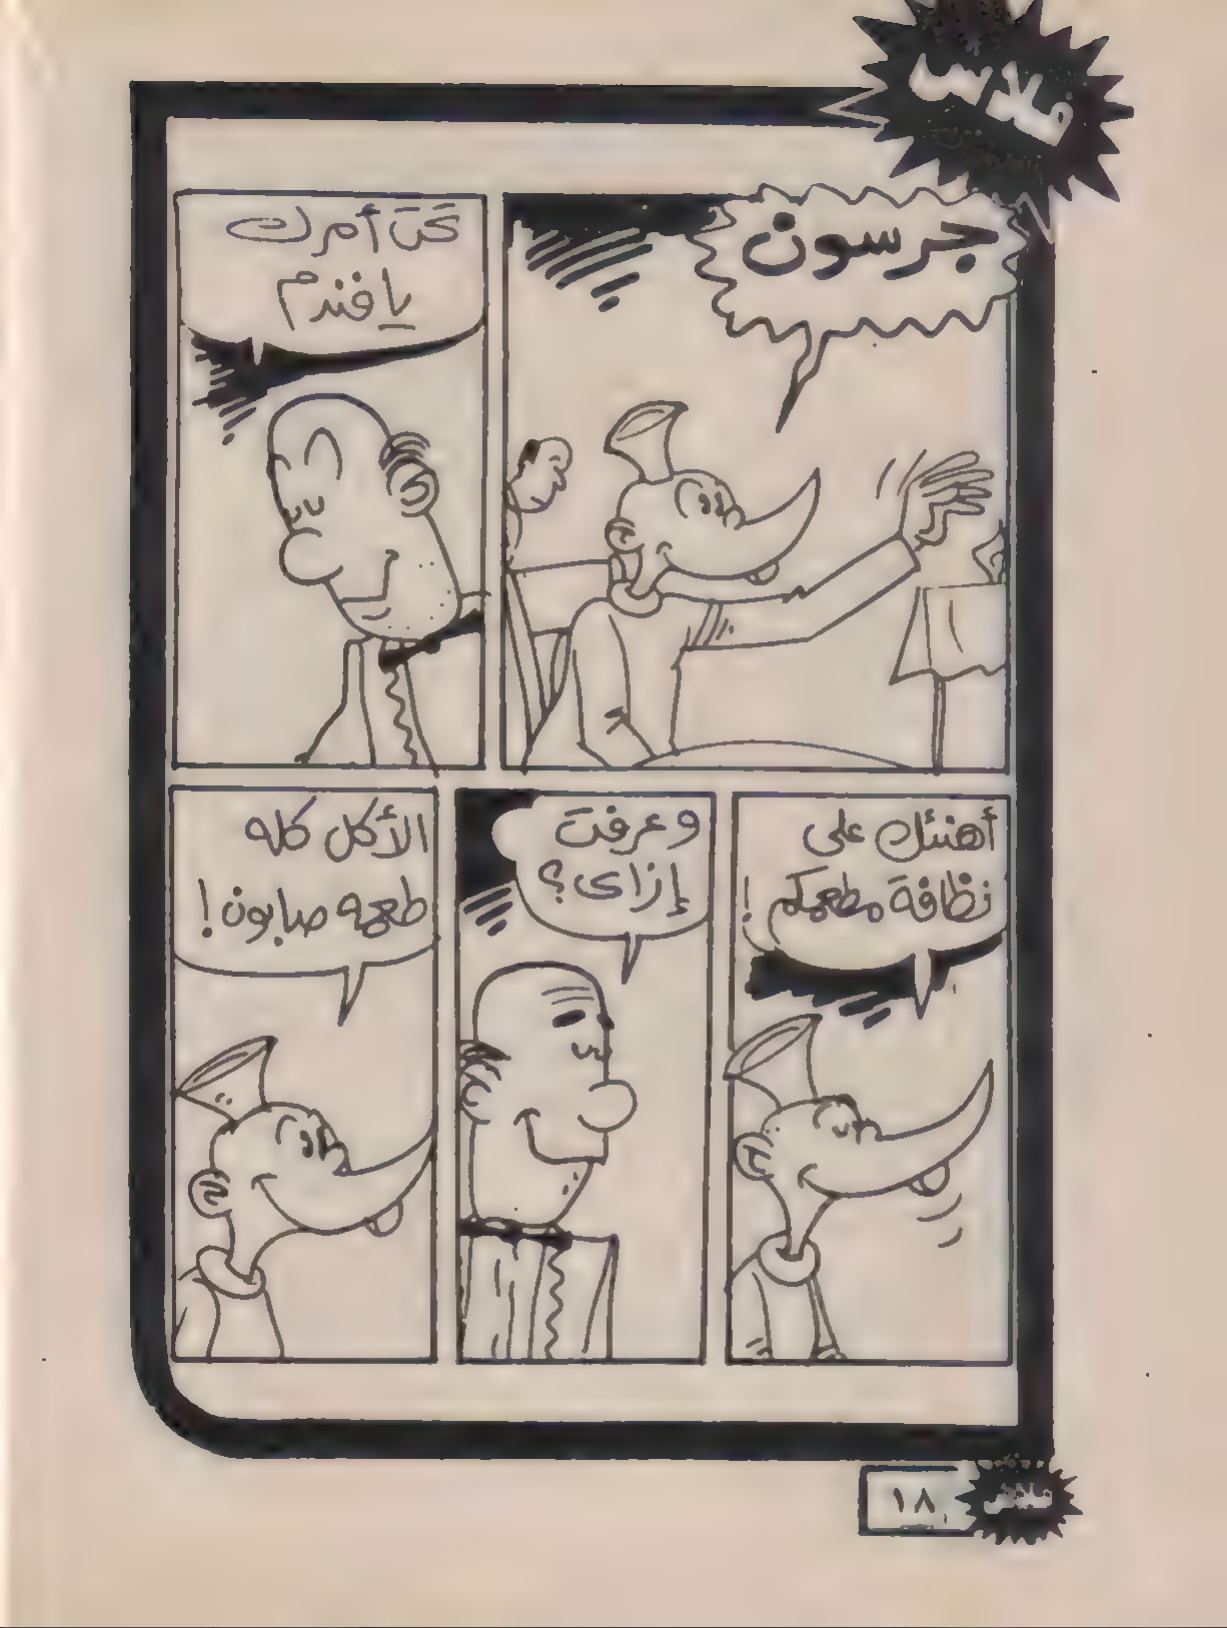 فلاش
جرسون
تحت أمرك
يا فندم
أهنئك على
نظافة مطعمكم !
وعرفت
إزاى ؟
الأكل كله
طعمه صابون !
١٨
فلاش